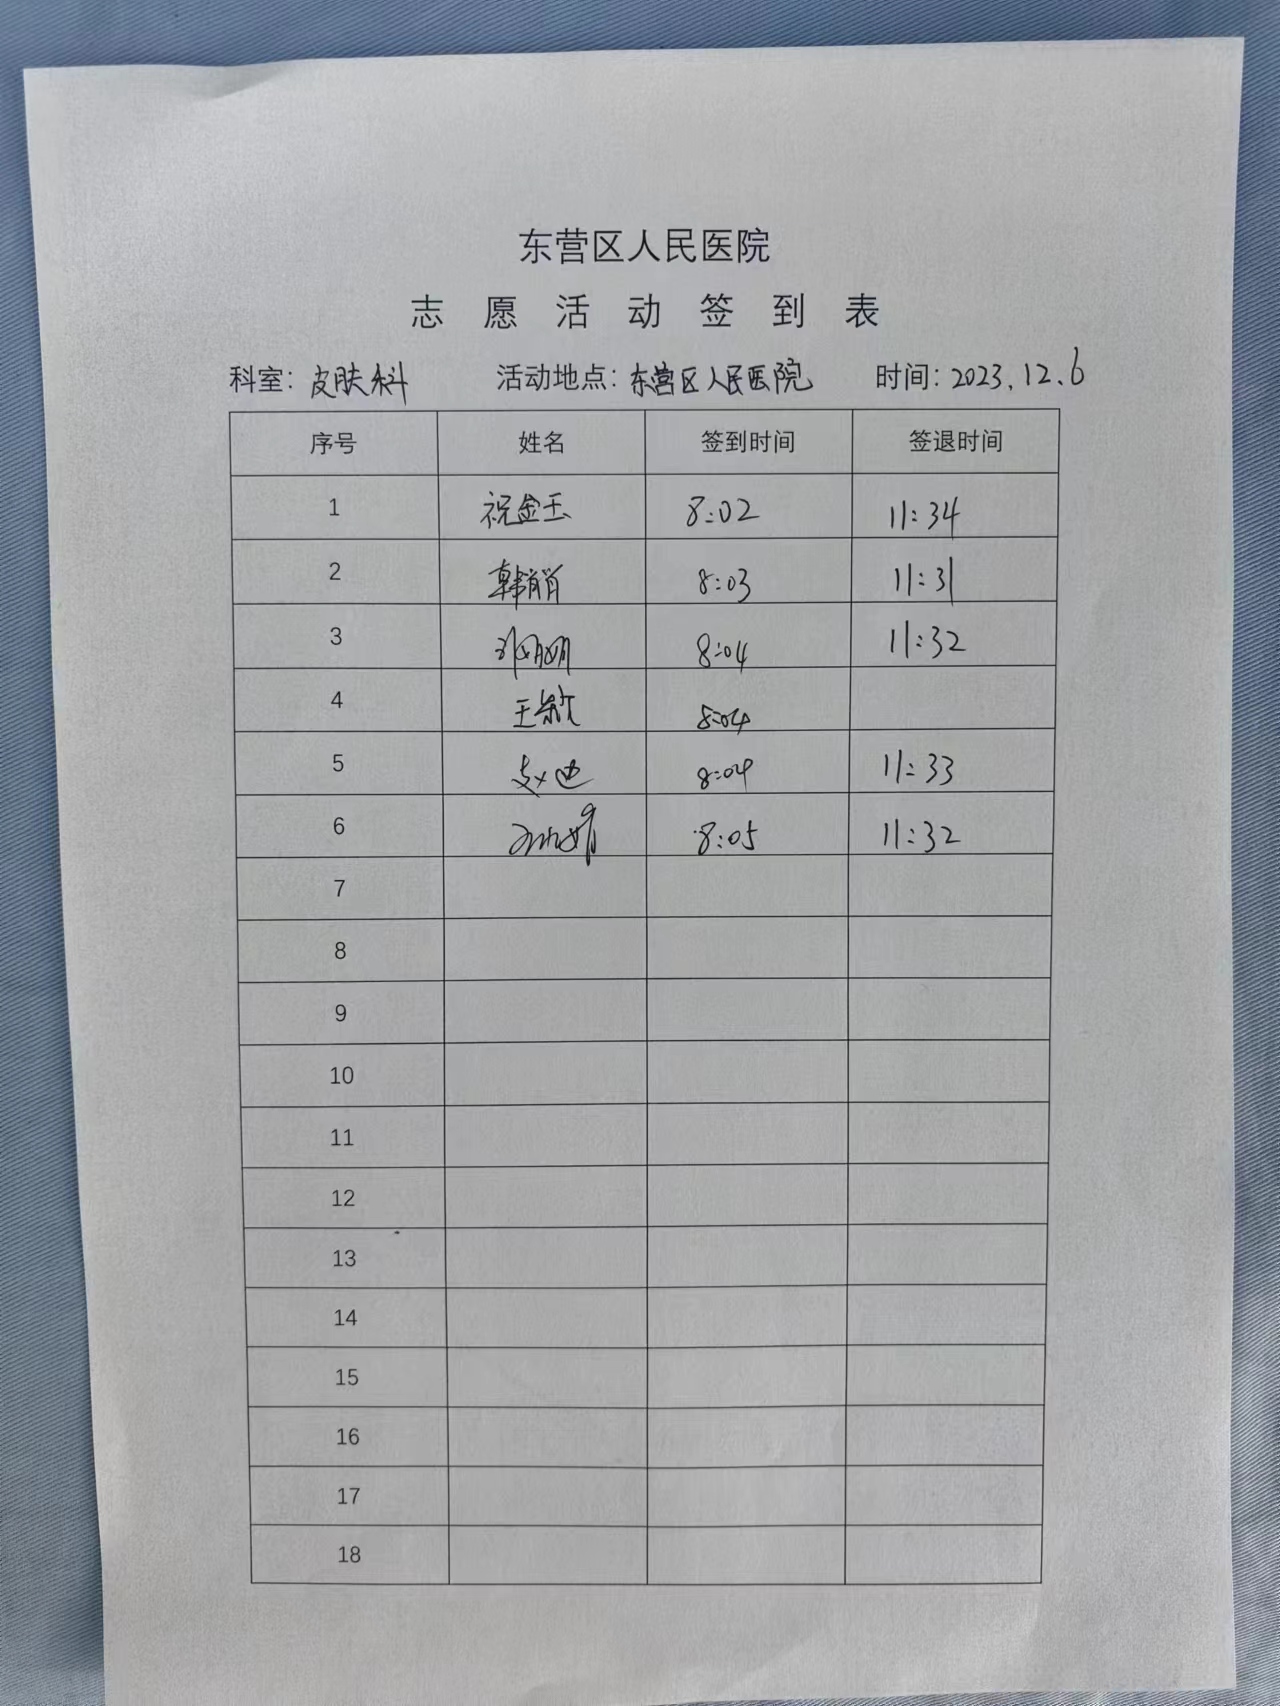 东营区人民医院
志愿活动签到表
科室：皮肤科 活动地点：东营区人民医院 时间：2023.12.6
序号 姓名 签到时间 签退时间
1 祝金玉 8:02 11:34
2 韩肖肖 8:03 11:31
3 8:04 11:32
4 王 8:04
5 赵迪 8:04 11:33
6 8:05 11:32
7
8
9
10
11
12
13
14
15
16
17
18